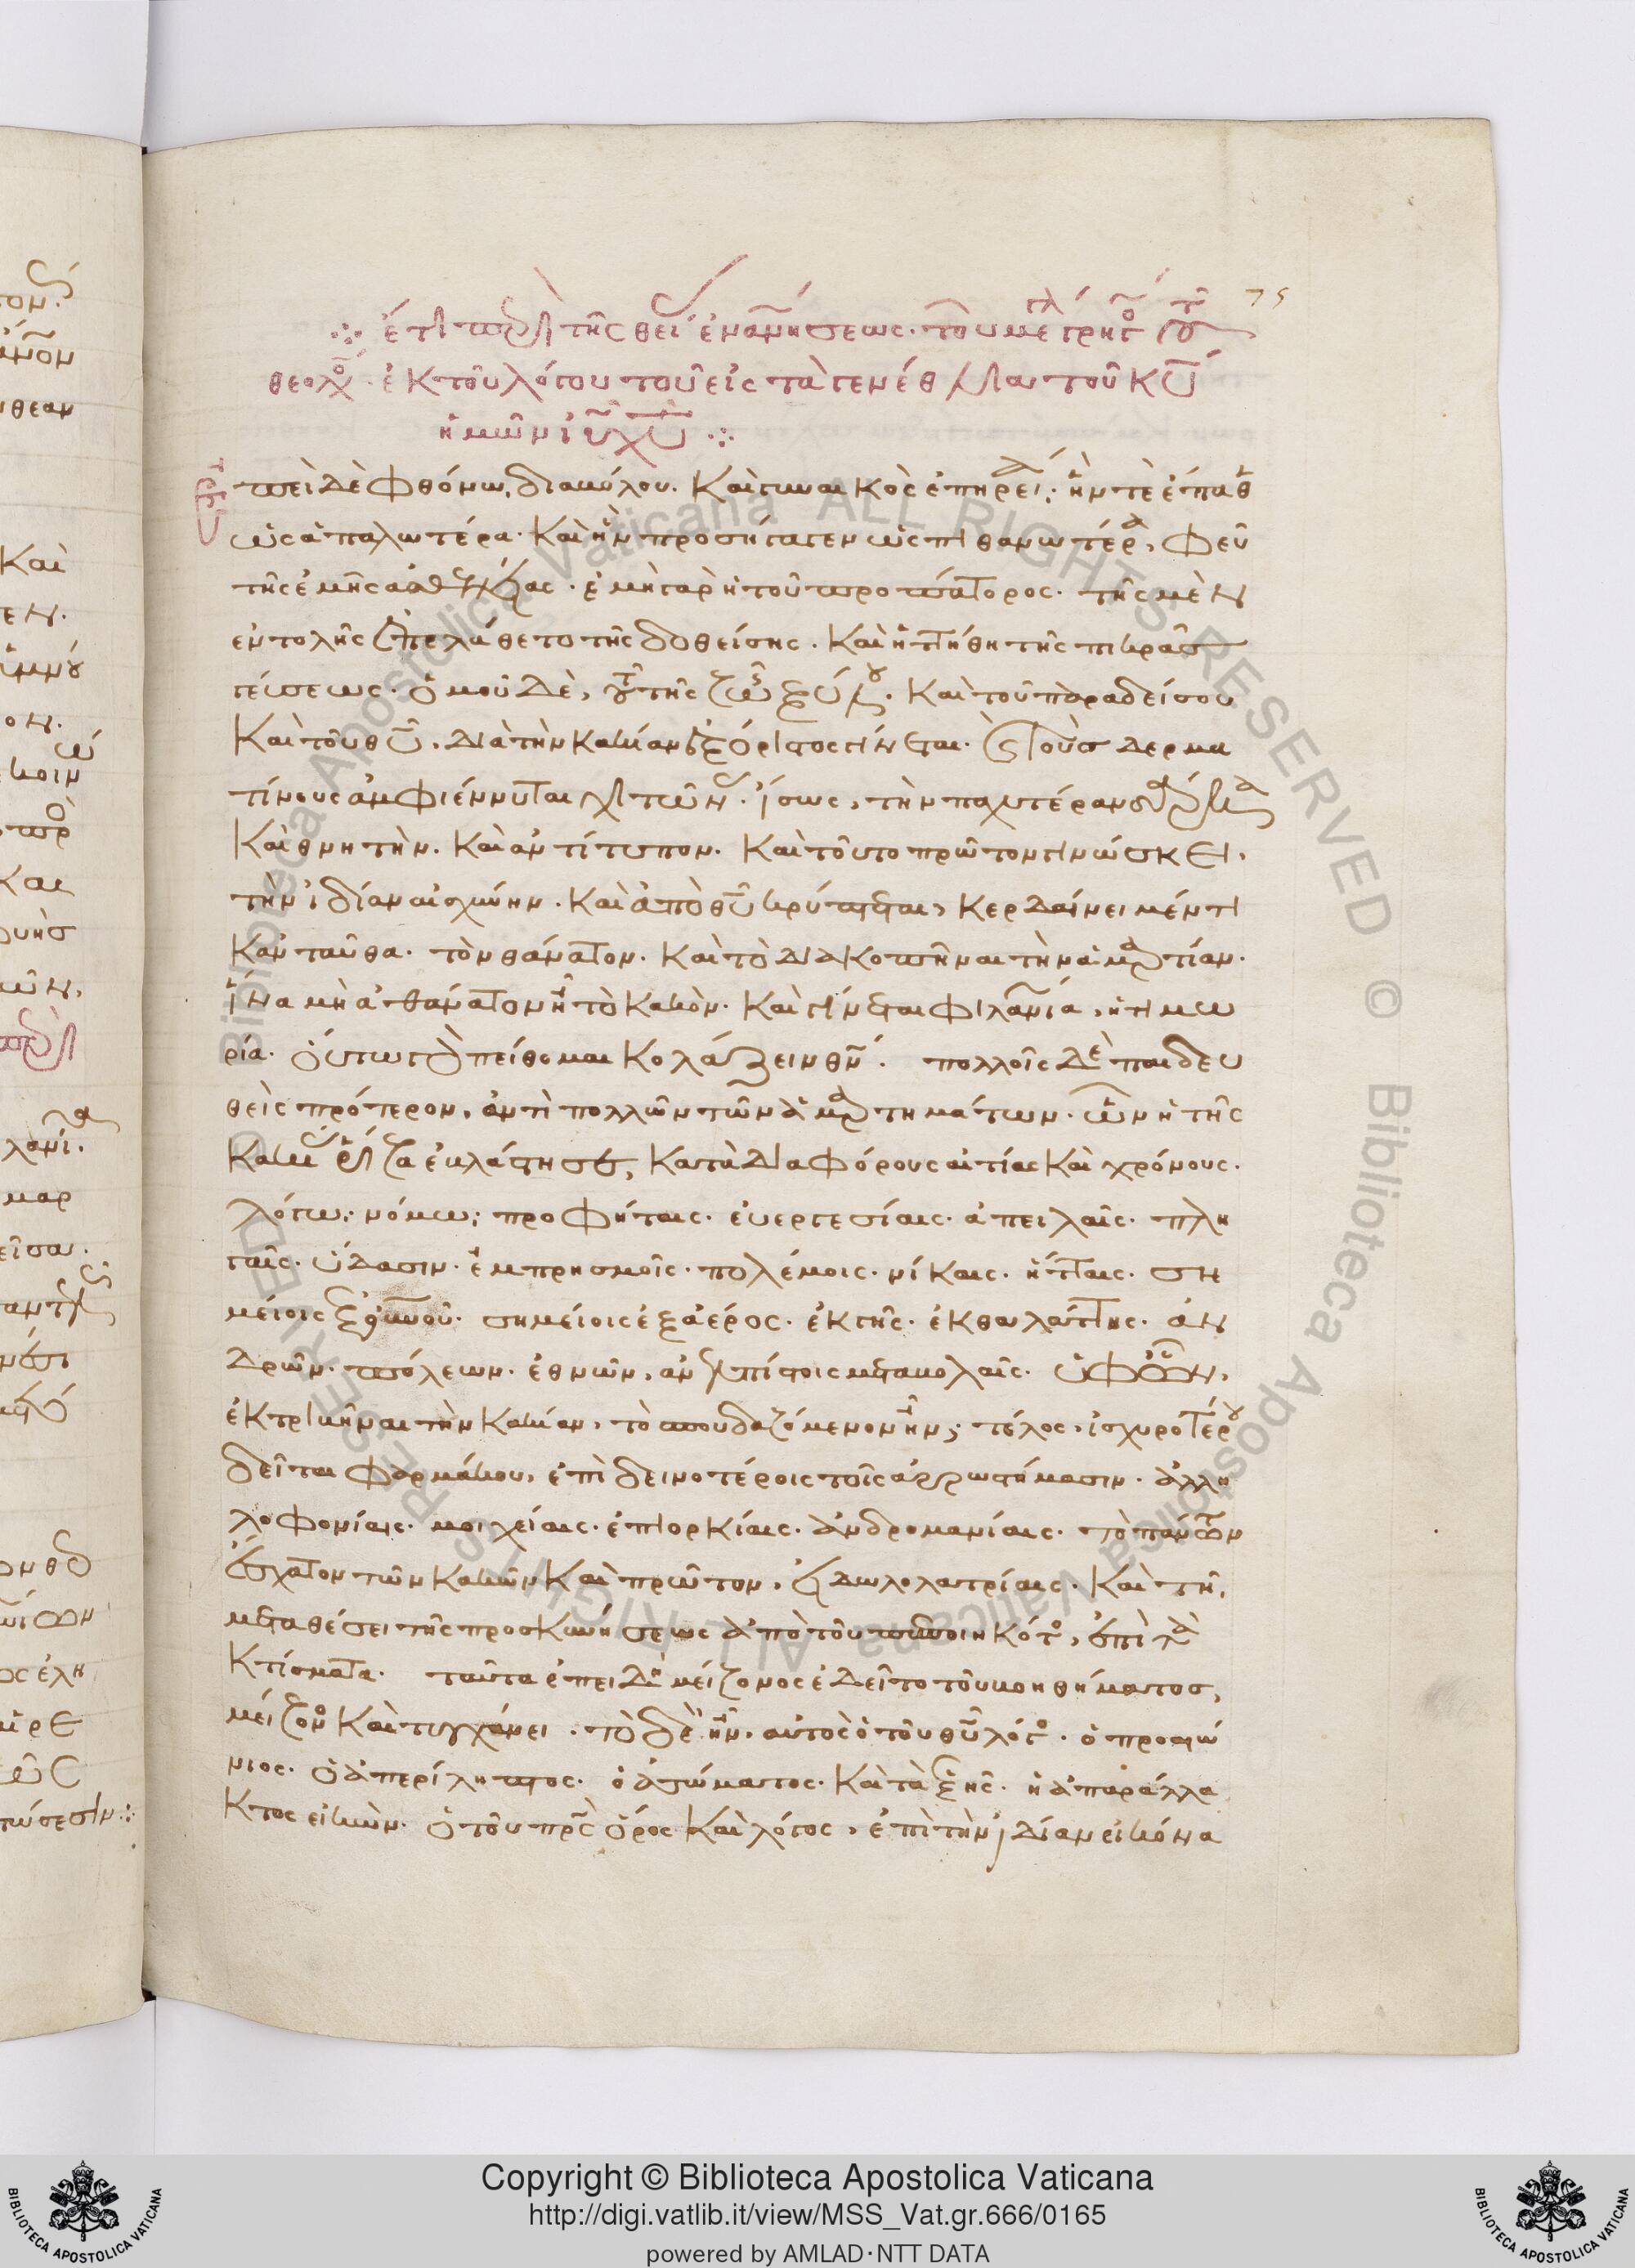 75
ἔτι περὶ τῆς θεί ἐναν(θρωπ)ήσεως. τοῦ με γρηγ τοῦ
θεολό. ἐκ τοῦ λόγου τοῦ εἰς τὰ γενέθλια τοῦ κυ
ἡμῶν ιυ χυ
πεὶ δὲ φθόνω διαβόλου. καὶ γυναικὸς ἐπηρεία. ἥν τε ἔπαθ
ὡς ἁπαλωτέρα. καὶ ἣν προσήγαγεν ὡς πιθανωτέρα, φεῦ
τῆς ἐμῆς ἀσθενείας. ἐμὴ γὰρ ἡ τοῦ προπάτορος. τῆς μὲν
ἐντολῆς ἐπελάθετο τῆς δοθείσης. καὶ ἡττήθη τῆς πικρᾶς
γεύσεως. ὁμοῦ δὲ, τοῦ τῆς ζωῆς ξύλου. καὶ τοῦ παραδείσου
καὶ τοῦ θυ, διὰ τὴν κακίαν ἐξόριστος γίνεται. καὶ τοὺς δερμα
τίνους ἀμφιέννυται χιτῶνας. ἴσως, τὴν παχυτέραν σάρκα
καὶ θνητὴν. καὶ ἀντίτυπον. καὶ τοῦτο πρῶτον γινώσκει.
τὴν ἰδίαν αἰσχύνην. καὶ ἀπὸ θυ κρύπτεται, κερδαίνει μέν τι
καὐταῦθα. τὸν θάνατον. καὶ τὸ διακοπῆναι τὴν ἁμαρτίαν.
ἵνα μὴ ἀθάνατον ἦ τὸ κακόν. καὶ γίνεται φιλανία, ἡ τιμω
ρία. οὕτω γὰρ πείθομαι κολάζειν θν. πολλοῖς δὲ παιδευ
θεὶς πρότερον, ἀντὶ πολλῶν τῶν ἁμαρτημάτων. ὧν ἡ τῆς
κακίας ῥίζα ἐβλάστησε, κατὰ διαφόρους αἰτίας καὶ χρόνους.
λόγω. νόμω. προφήταις. εὐεργεσίαις. ἀπειλαῖς. πλη
γαῖς. ὕδασιν. ἐμπρησμοῖς. πολέμοις. νίκαις. ἥτταις. ση
μείοις ἐξ οὐνοῦ. σημείοις ἐξ ἀέρος. ἐκ γῆς. ἐκ θαλάττης. ἀν
δρῶν. πόλεων. ἐθνῶν, ἀνελπίστοις μεταβολαῖς. ὑφ' ὧν,
ἐκτριβῆναι τὴν κακίαν, τὸ σπουδαζόμενον ἦν, τέλος, ἰσχυροτέρου
δεῖται φαρμάκου, ἐπὶ δεινοτέροις τοῖς ἀρρωστήμασιν. ἀλλη
λοφονίαις. μοιχείαις. ἐπιορκίαις. ἀνδρομανίαις. τὸ πάντων
ἔσχατον τῶν κακῶν καὶ πρῶτον, εἰδωλολατρίαις. καὶ τῆ,
μεταθέσει τῆς προσκυνήσεως ἀπὸ τοῦ πεποιηκότος, ἐπὶ τὰ
κτίσματα. ταῦτα ἐπειδὴ μείζονος ἐδεῖτο τοῦ βοηθήματος,
μείζονος καὶ τυγχάνει. τὸ δὲ ἦν. αὐτὸς ὁ τοῦ θυ λόγος. ὁ προαιώ
νιος. ὁ ἀπερίληπτος. ὁ ἀσώματος. καὶ τὰ ἑξῆς. ἡ ἀπαράλλα
κτος εἰκών. ὁ τοῦ πρς ὅρος καὶ λόγος, ἐπὶ τὴν ἰδίαν εἰκόνα
Copyright © Biblioteca Apostolica Vaticana
http://digi.vatlib.it/view/MSS_Vat.gr.666/0165
powered by AMLAD·NTT DATA